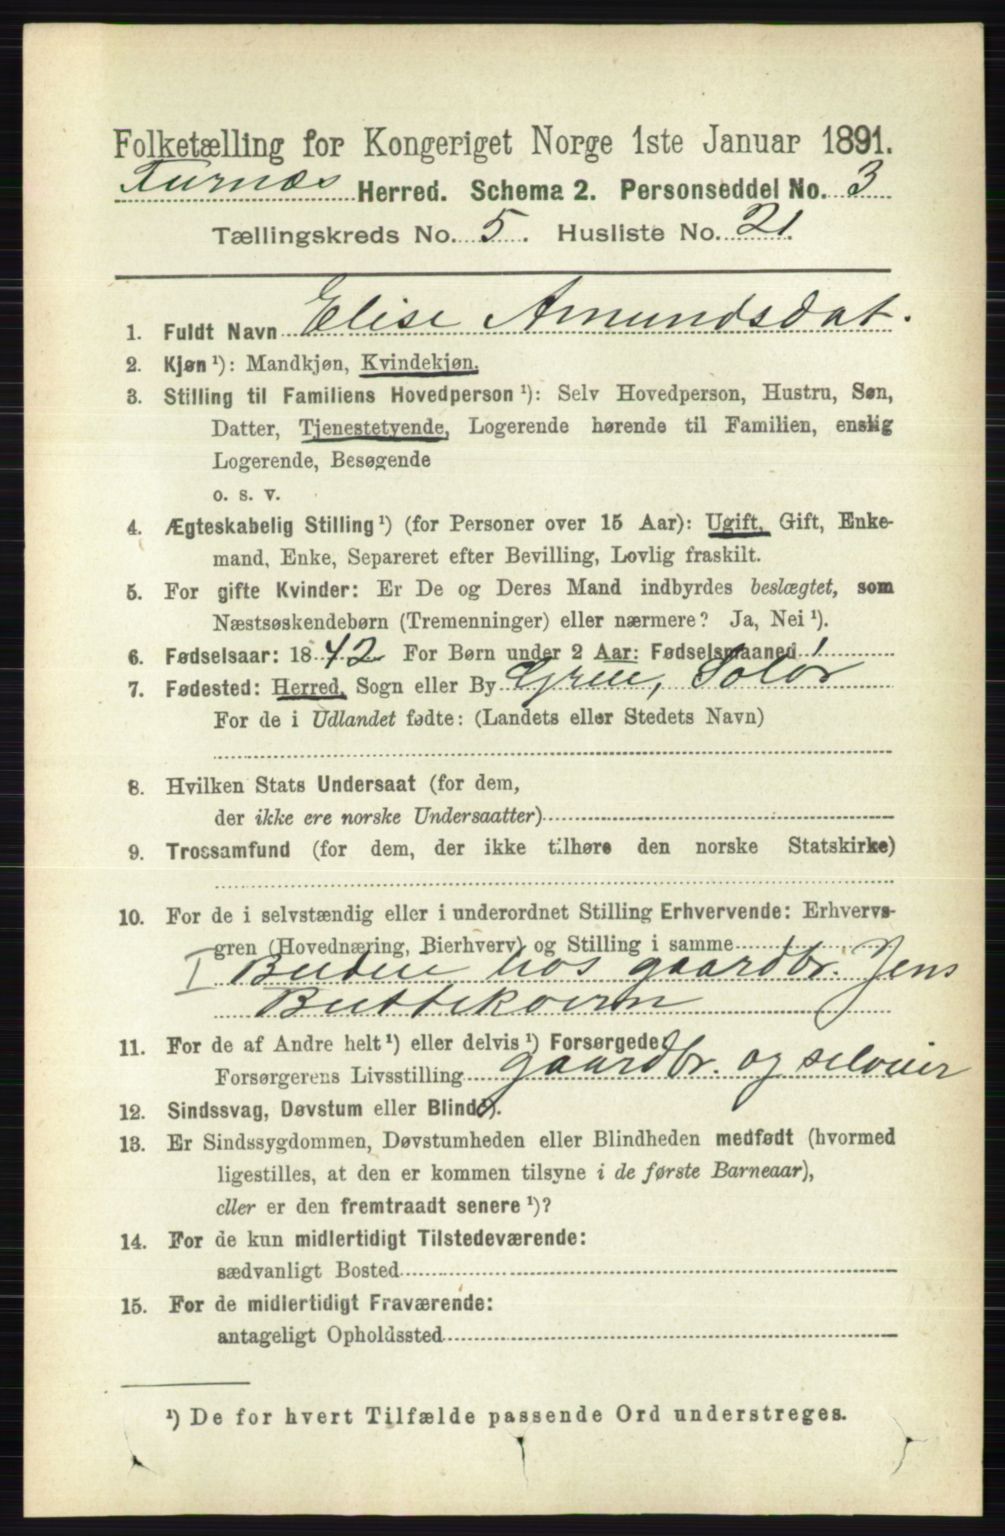 Folketælling for Kongeriget Norge 1ste Januar 1891.
Furnæs Herred. Schema 2. Personseddel No. 3
Tællingskreds No. 5. Husliste No. 21.
1. Fuldt Navn Elise Amundsdat.
2. Kjøn ¹): Mandkjøn, Kvindekjøn.
3. Stilling til Familiens Hovedperson ¹): Selv Hovedperson, Hustru, Søn,
Datter, Tjenestetyende, Logerende hørende til Familien, enslig
Logerende, Besøgende
o. s. v.
4. Ægteskabelig Stilling ¹) (for Personer over 15 Aar): Ugift, Gift, Enke-
mand, Enke, Separeret efter Bevilling, Lovlig fraskilt.
5. For gifte Kvinder: Er De og Deres Mand indbyrdes beslægtet, som
Næstsøskendebørn (Tremenninger) eller nærmere? Ja, Nei ¹).
6. Fødselsaar: 1842 For Børn under 2 Aar: Fødselsmaaned
7. Fødested: Herred, Sogn eller By Grue, Solør
For de i Udlandet fødte: (Landets eller Stedets Navn)
8. Hvilken Stats Undersaat (for dem,
der ikke ere norske Undersaatter)
9. Trossamfund (for dem, der ikke tilhøre den norske Statskirke)
10. For de i selvstændig eller i underordnet Stilling Erhvervende: Erhvervs-
gren (Hovednæring, Bierhverv) og Stilling i samme
I Budeie hos gaardbr. Jens
Buttekvern
11. For de af Andre helt ¹) eller delvis ¹) Forsørgede:
Forsørgerens Livsstilling gaardbr. og seloeier
12. Sindssvag, Døvstum eller Blind ¹).
13. Er Sindssygdommen, Døvstumheden eller Blindheden medfødt (hvormed
ligestilles, at den er kommen tilsyne i de første Barneaar),
eller er den fremtraadt senere ¹)?
14. For de kun midlertidigt Tilstedeværende:
sædvanligt Bosted
15. For de midlertidigt Fraværende:
antageligt Opholdssted
¹) De for hvert Tilfælde passende Ord understreges.